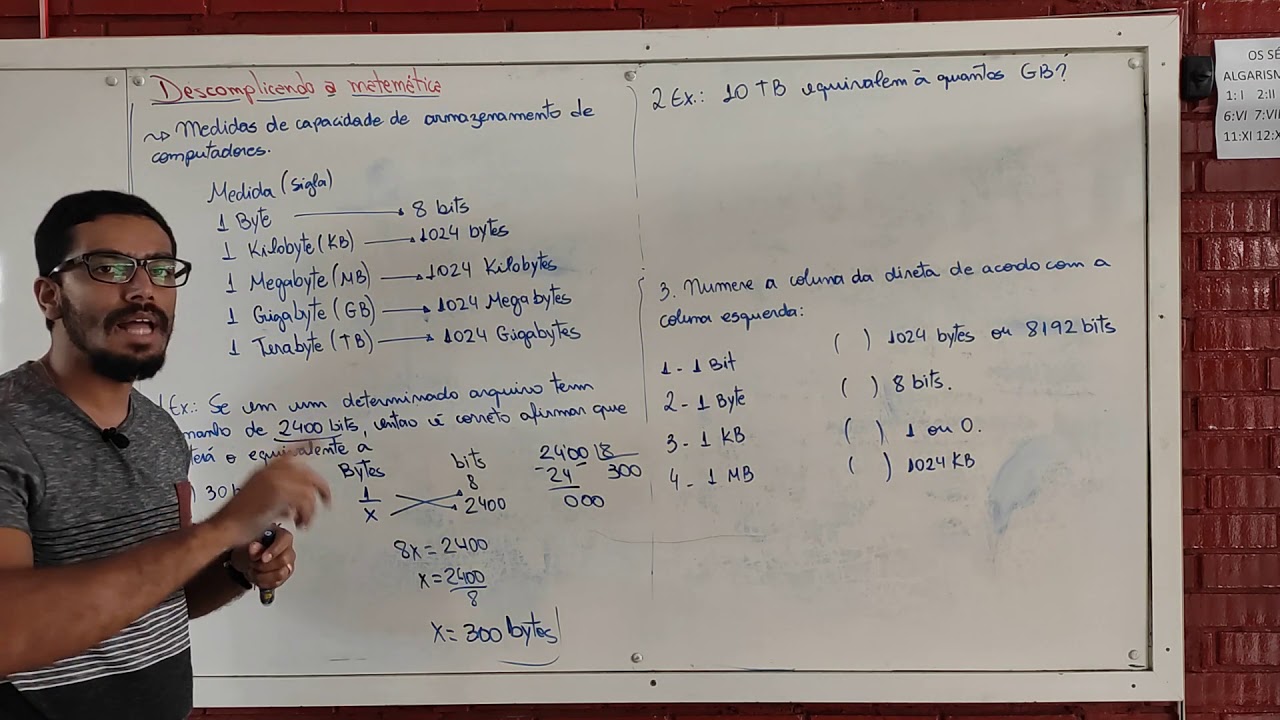 Descomplicando a matemática
~> Medidas de capacidade de armazenamento de
computadores.
Medida (sigla)
1 Byte → 8 bits
1 Kilobyte (KB) → 1024 bytes
1 Megabyte (MB) → 1024 Kilobytes
1 Gigabyte (GB) → 1024 Megabytes
1 Terabyte (TB) → 1024 Gigabytes
Ex.: Se em um determinado arquivo tem
manho de 2400 bits, então é correto afirmar que
terá o equivalente a
) 30
Bytes bits
1 8
x 2400
8x = 2400
x = 2400
8
x = 300 bytes
2400 8
-24 300
000
2 Ex.: 10 TB equivalem à quantos GB?
3. Numere a coluna da direta de acordo com a
coluna esquerda:
1 - 1 Bit ( ) 1024 bytes ou 8192 bits
2 - 1 Byte ( ) 8 bits.
3 - 1 KB ( ) 1 ou 0.
4 - 1 MB ( ) 1024 KB
OS SÉ
ALGARISM
1: I 2:II
6:VI 7:VI
11:XI 12:X